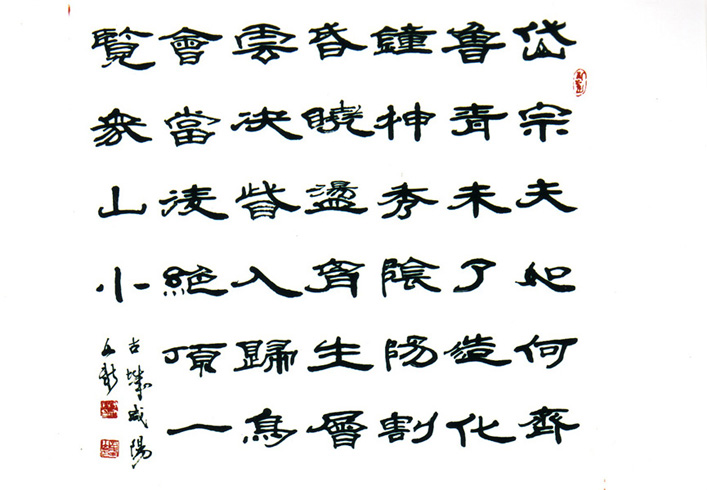 岱宗夫如何齊
魯青未了造化
鐘神秀陰陽割
昏曉盪胷生層
雲决眥入歸鳥
會當淩絕頂一
覽衆山小
古城咸陽